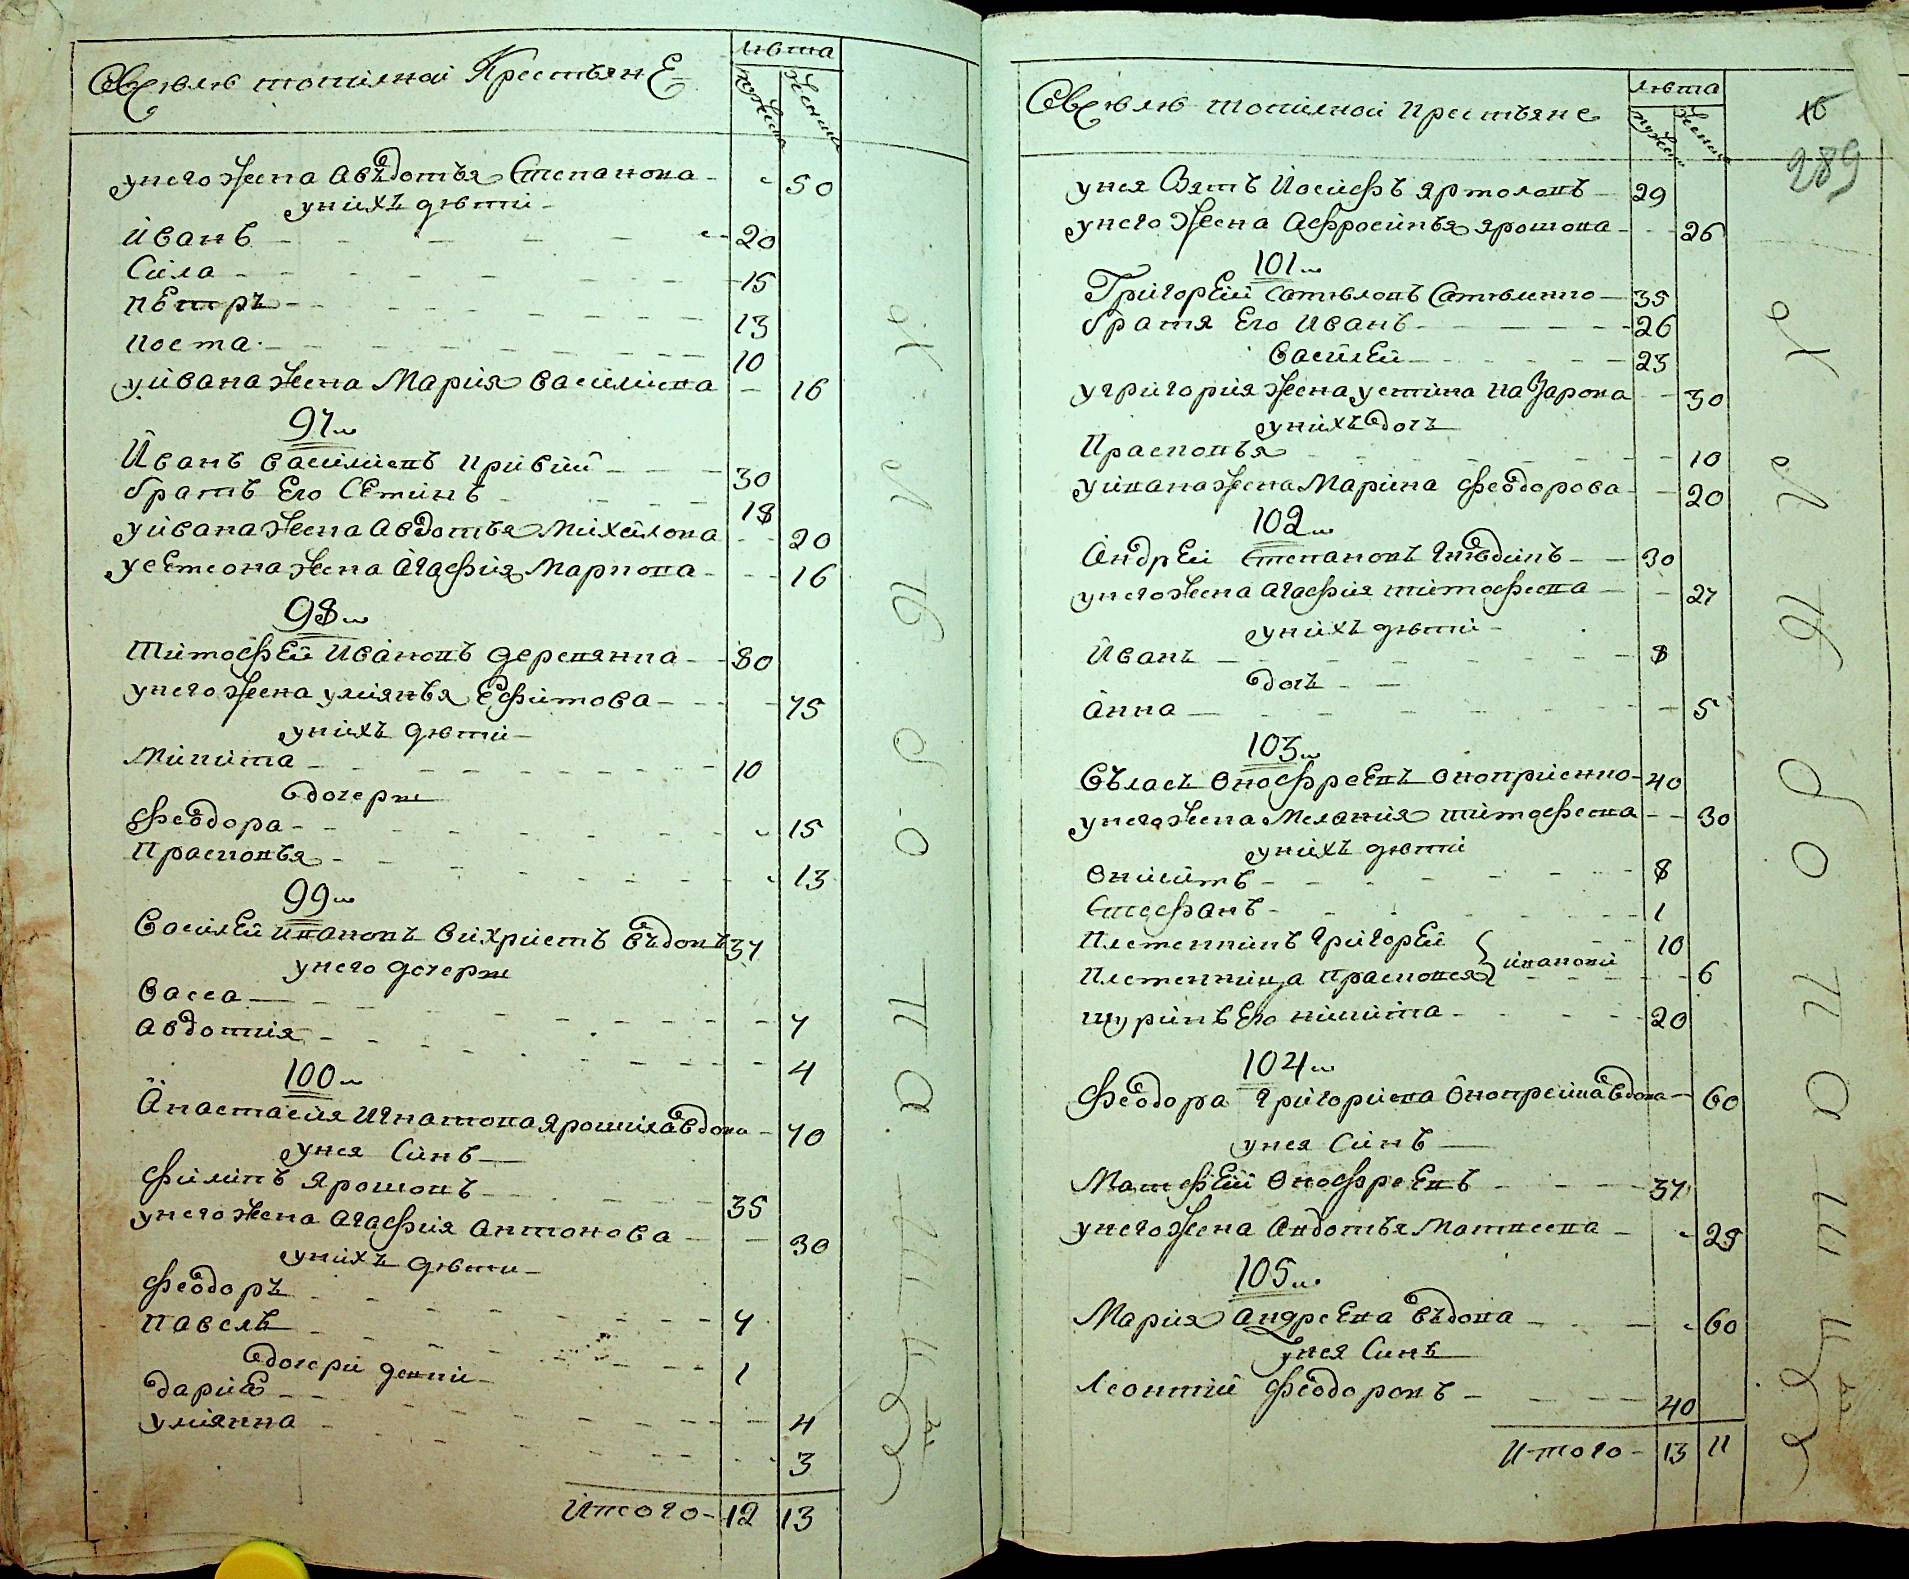 Лѣта
В Селѣ Топилной Крестьяне
мужеска
женска
у него жена Авъдотья Степанова - 50
у нихъ дѣти
Иванъ - 20
Сила - 15
Петръ - 13
Коста - 10
у Ивана жена Мария Василиева - 16
97
Иванъ Василиевъ Кривий - 30
братъ Его Семинъ - 18
у Ивана жена Авдотья Михайлова - 20
у Семеона жена Агафия Маркова - 16
98
Тимофей Ивановъ Деревянка - 80
у него жена Улиянья Ефимова - 75
у нихъ дѣти
Микита - 10
дочеры
Феодора - 15
Прасковья - 13
99
Василей Ивановъ Вихристъ въдовъ 37
у него дочеры
Васса - 7
Авдотия - 4
100
Анастасия Игнатова вдова - 70
у нея Синъ
Филипъ Ярошовъ - 35
у него жена Агафия Антонова - 30
у нихъ дѣти
Феодоръ - 7
Павелъ - 1
дочери
Дария - 4
Улиянна - 3
Итого - 12 13
Лѣта
В Селѣ Топилной Крестьяне
мужеска
женска
289
у нея Зять Иосифъ Яртоловъ - 29
у него жена Афросинья Ярошова - 26
101
Григорей - 35
братя Его Иванъ - 26
Василей - 23
у Григория жена Устина Назарова - 30
у нихъ дочь
Прасковья - 10
у Ивана жена Марина Феодорова - 20
102
Андрей Степановъ - 30
у него жена Агафия Тимофеева - 27
у нихъ дѣти
Иванъ - 8
дочь
Анна - 5
103
Вълась Онофреевъ Оноприенко - 40
у него жена Мелания Тимофеева - 30
у нихъ дѣти
Онисимъ - 8
Стефанъ - 1
Племенникъ Григорей - 10
Племенница Прасковея Иванови - 6
шуринъ Его Никита - 20
104
Феодора Григориева вдова - 60
у нея Синъ
Матфей Онофреевъ - 37
у него жена Авдотья Матвеева - 29
105
Мария Андреева въдова - 60
у нея Синъ
Леонтий Феодоровъ - 40
Итого - 13 11